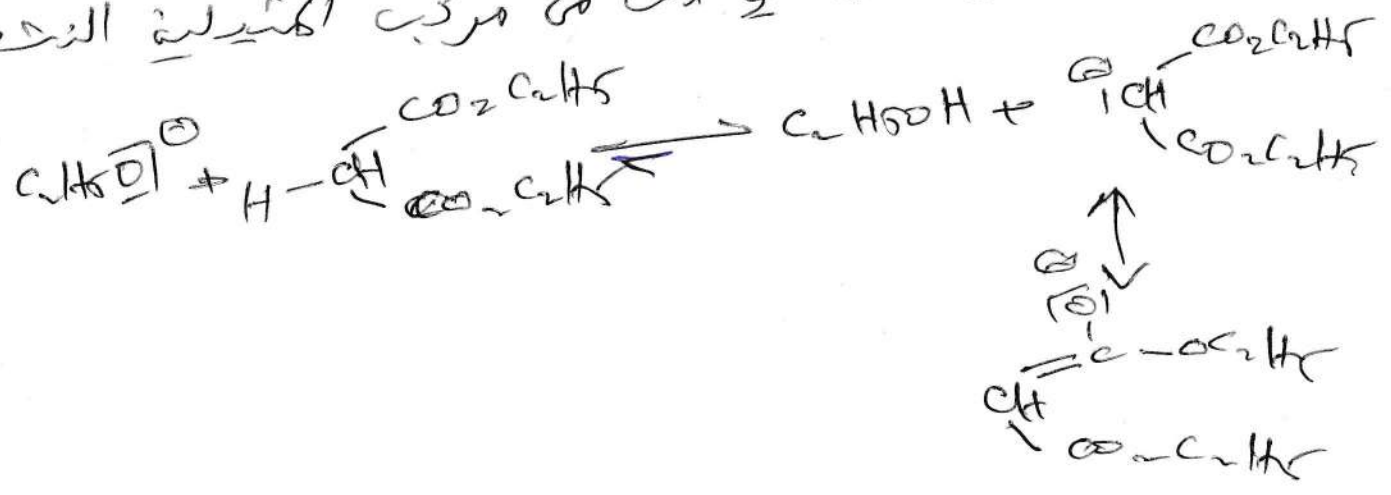 من مركب المتيلية النشـ
C₂H₅O|⊖ + H–CH CO₂C₂H₅ CO₂C₂H₅ ⇌ C₂H₅OH + ⊖|CH CO₂C₂H₅ CO₂C₂H₅
↕
⊖
|O|
CH=C–OC₂H₅
CO₂C₂H₅